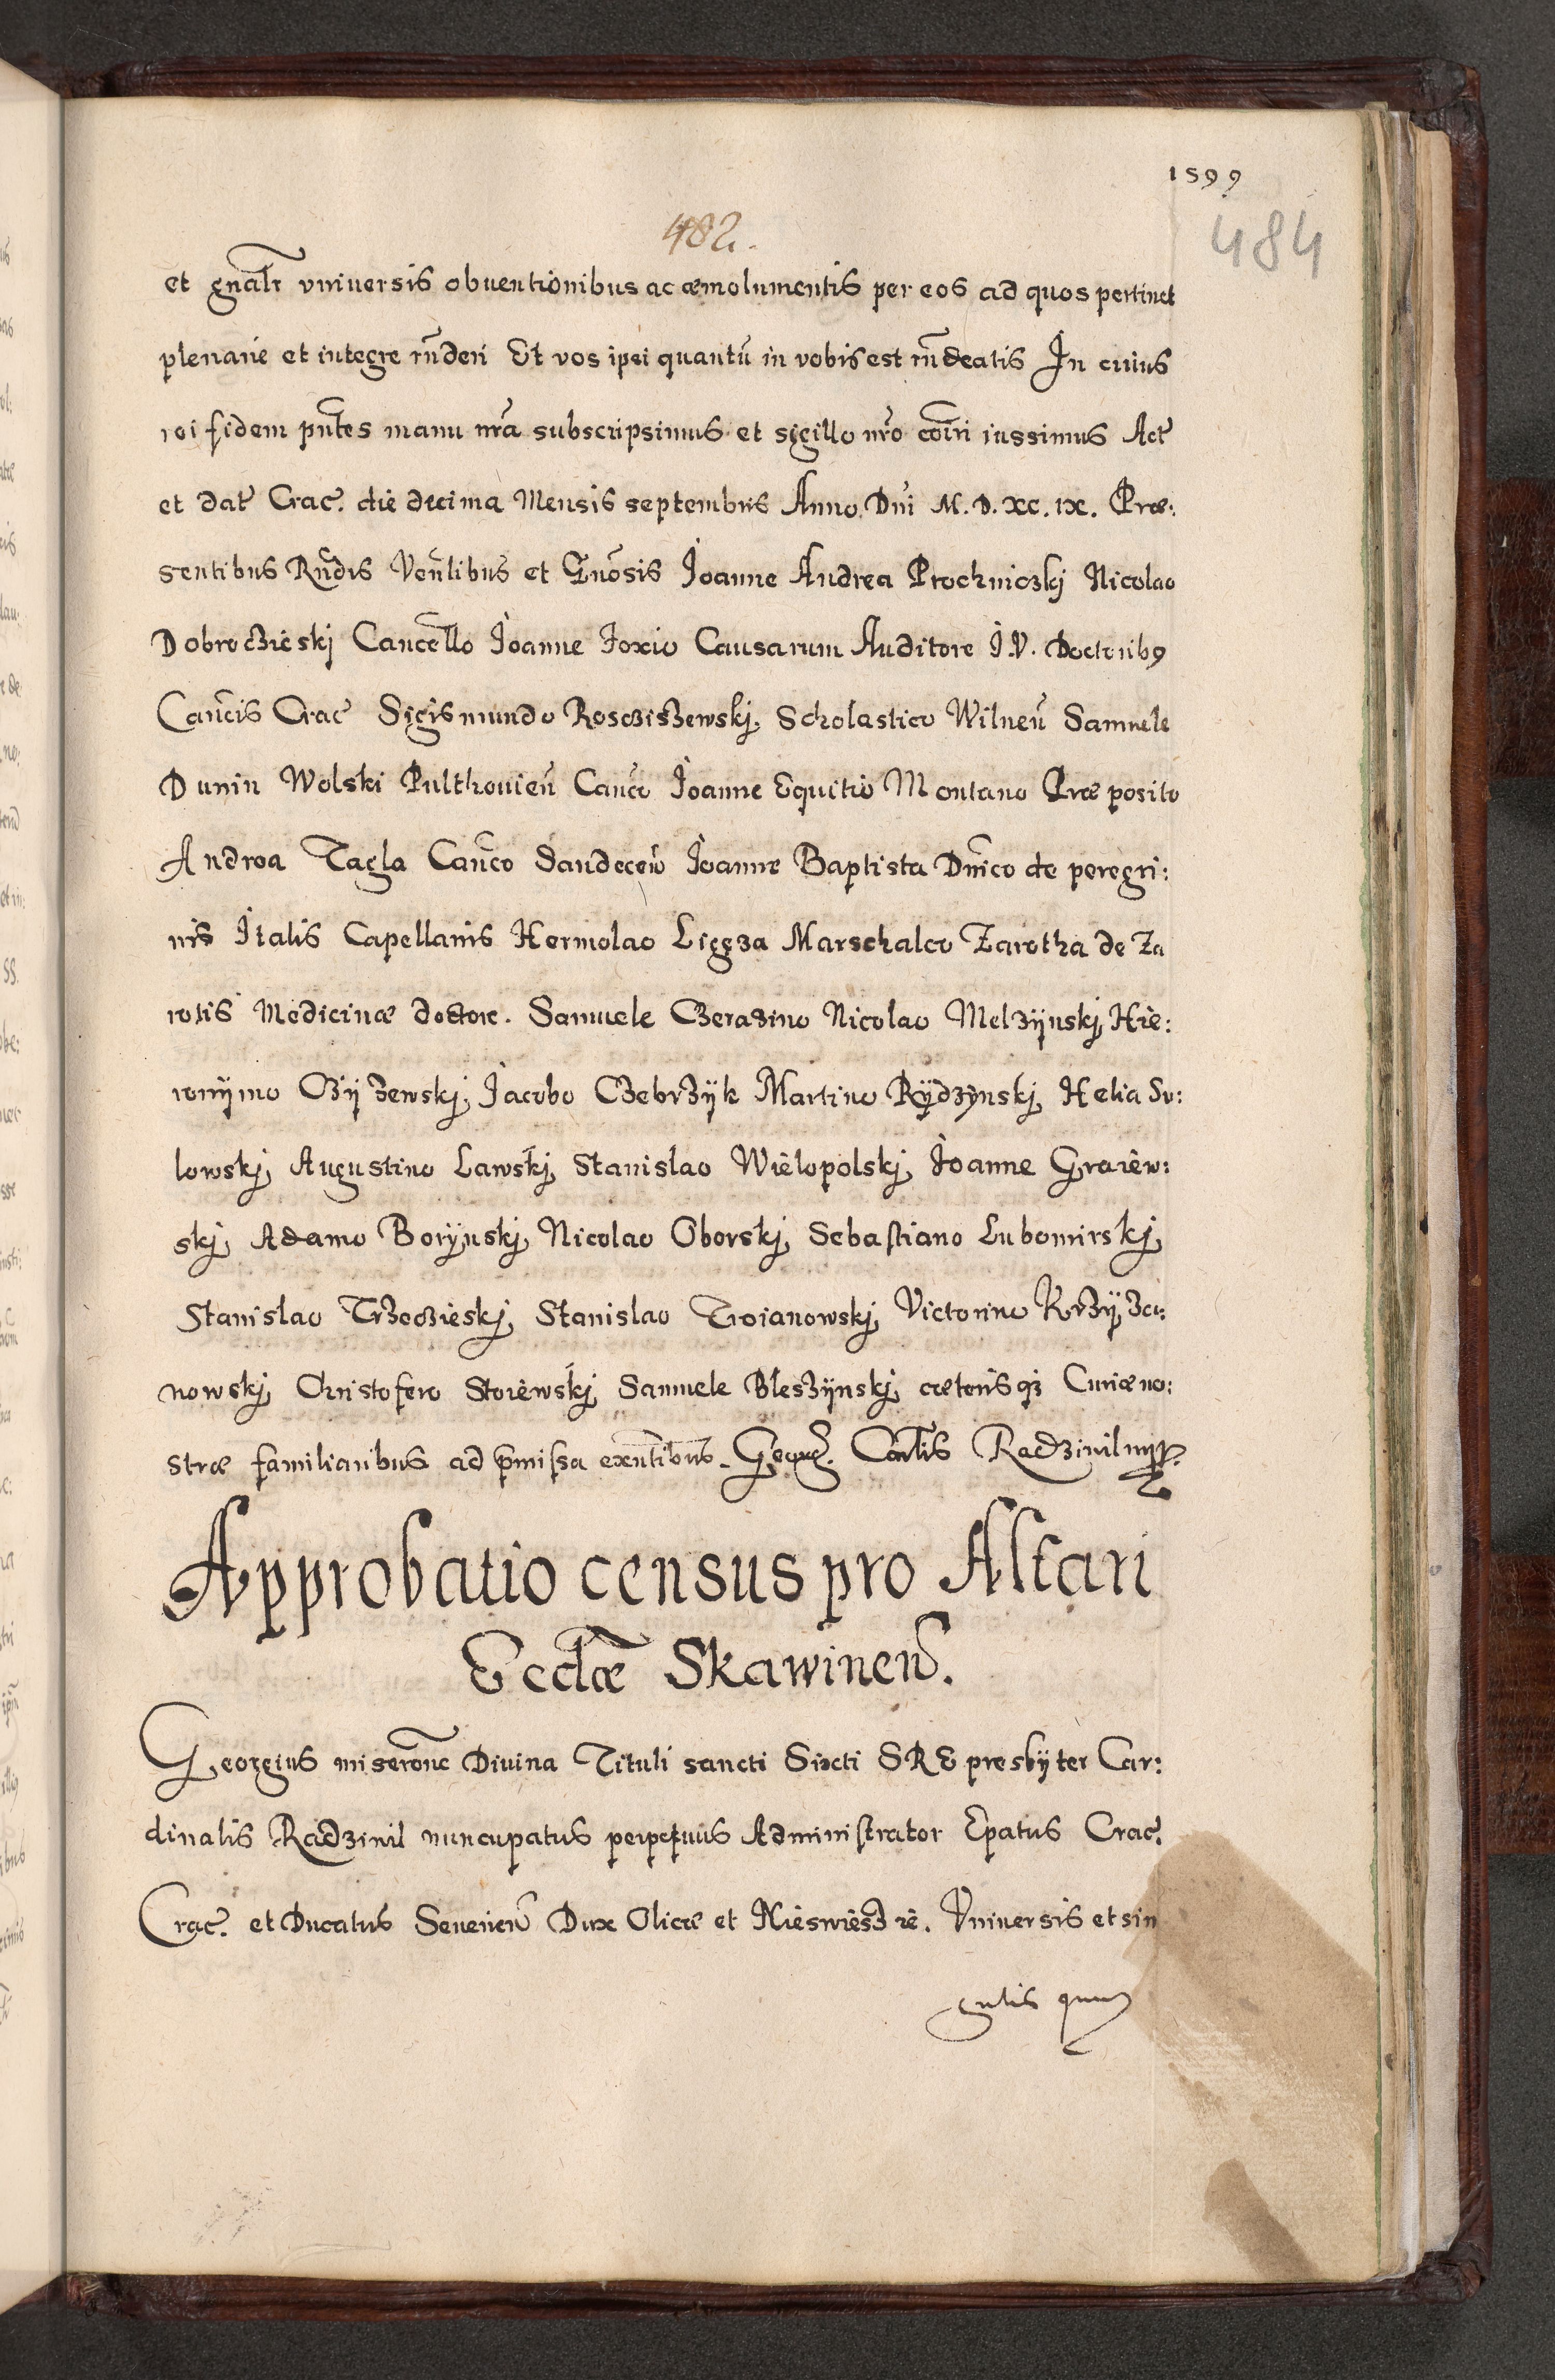 1599
482.
484
et gnãlr vniuersis obuentionibus ac æmolumentis per eos ad quos pertinet
plenarie et integre rñderi Et vos ipsi quantũ in vobis est rñdeatis In cuius
rei fidem pñtes manu nrã subscripsimus et sigillo nr̃o coĩri iussimus Act
et dat Crac. die decima Mensis septembris Anno Dñi M.D.XC.IX. Præ:
sentibus Rñdis Veñlibus et Gñosis Joanne Andrea Prochniczkj Nicolao
Dobrocziesкj Cancello Joanne Foxio Causarum Auditore J.V. Doctorib9
Cañcis Crac Sigismundo Roscziszewskj Scholastico Wilneñ Samuele
Dunin Wolski Pulthouieñ Cañco Joanne Equitio Montano Præposito
Andrea Tagla Cañco Sandeceñ Joanne Baptista Dñico de peregri:
nis Italis Capellanis Hermolao Ligęza Marschalco Zarotha de Za
rotis Medicinæ doctore. Samuele Czerazino Nicolao Melzÿnskj Hie:
ronÿmo Czÿzewskj Jacobo Czebrzÿk Martino Rÿdzÿnskj Helia Su:
lowskj Augustino Lawskj Stanislao Wielopolskj Joanne Graiew:
skj Adamo Borÿnskj Nicolao Oborskj Sebastiano Lubomirskj
Stanislao Trzeczieskj Stanislao Troianowskj Victorino Krzÿza:
nowskj Christofero Storewskj Samuele Bleszÿnskj cæterisq3 Curiæ no:
stræ familiaribus ad p̃missa exñtibus. Georg. Carlis Radziwil mpp
Approbatio census pro Altari
Eccl̃æ Skawineñ.
Georgius miserõne Diuina Tituli sancti Sixti SRE presbÿter Car:
dinalis Radziwil nuncupatus perpetuus Administrator Ep̃atus Crac.
Crac. et Ducatus Seuerieñ Dux Olicæ et Nieswiesz ie. Vniuersis et sin
gulis quor